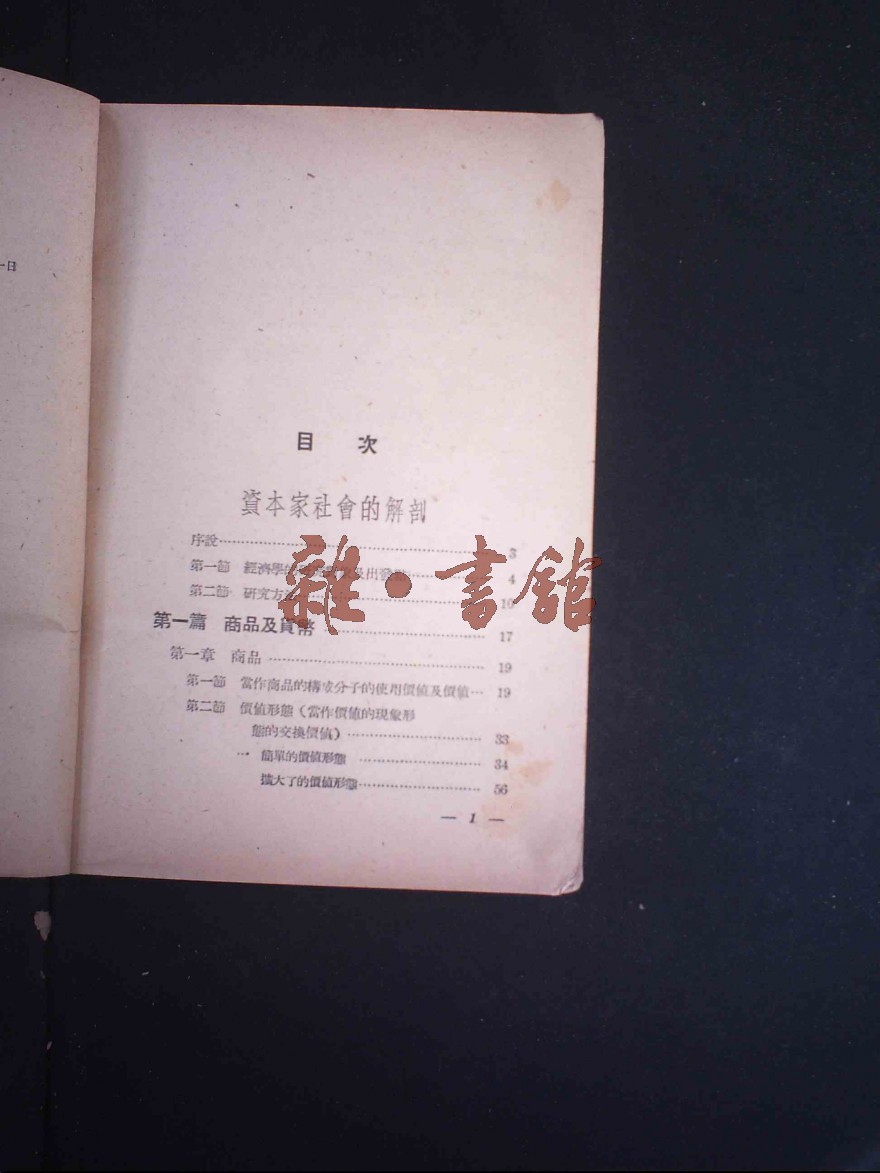 一日
目 次
資本家社會的解剖
序說 3
第一節 經濟學的 及出發點 4
第二節 研究方法 10
第一篇 商品及貨幣 17
第一章 商品 19
第一節 當作商品的構成分子的使用價值及價值 19
第二節 價值形態(當作價值的現象形
態的交換價值) 33
一 簡單的價值形態 34
擴大了的價值形態 56
— 1 —
雜·書館